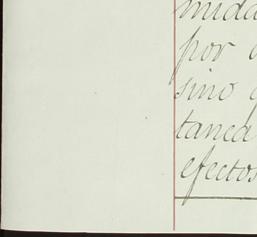 mida
por
sino
tanea
efectos